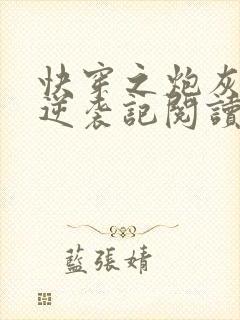 快穿之炮灰
逆袭記閱讀
藍張婧